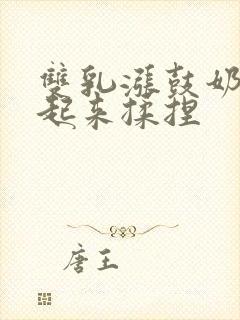 雙乳漲鼓奶
起来揉捏
唐王